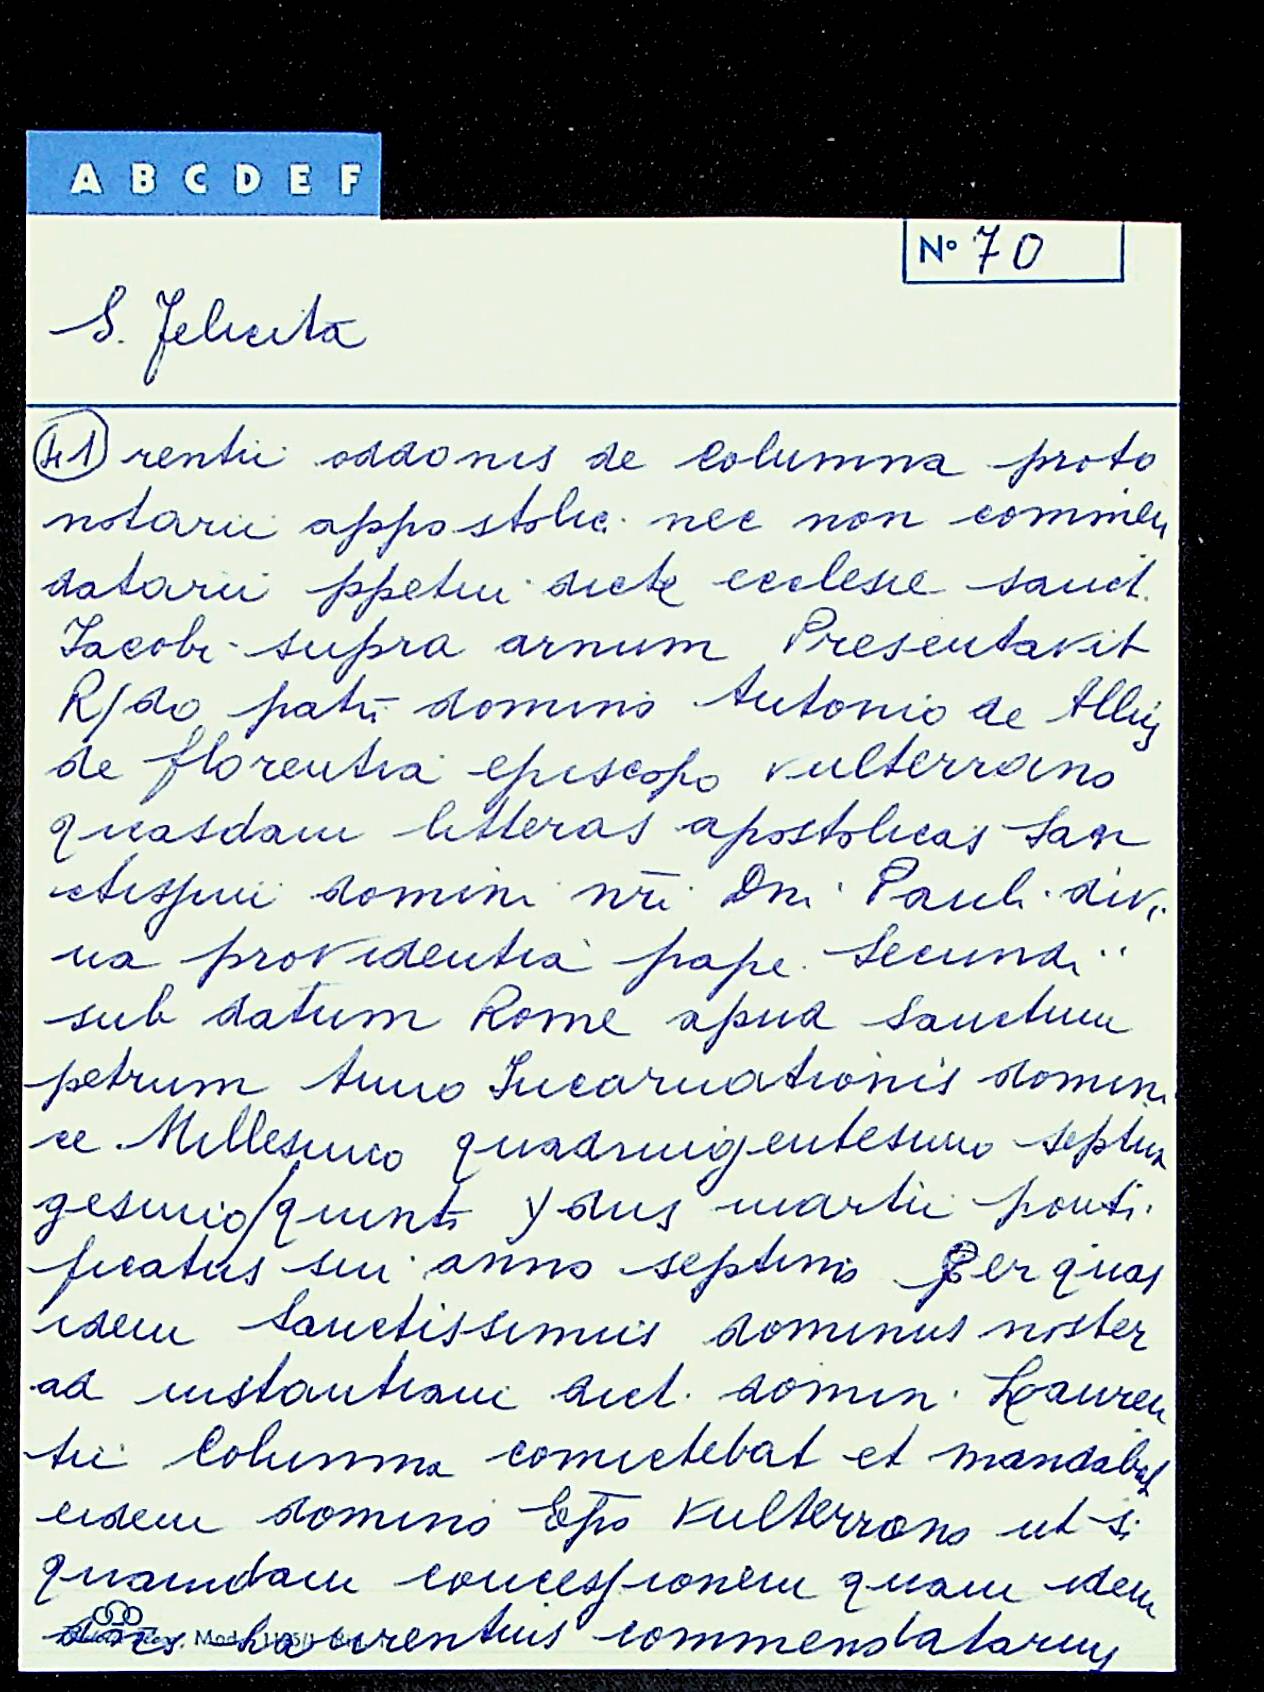 A B C D E F
Nº 70
S. Felicita
41 rentii oddonis de Columna proto
notarii appostolic. nec non commen
datarii ppetui dicte ecclesie sanct.
Iacobi supra arnum Presentavit
R/do patri domino Antonio de Allijs
de florentia episcopo vulterrano
quasdam litteras apostolicas San
ctissimi domini nri Dni Pauli divi
na providentia pape Secundi
sub datum Rome apud Sanctum
petrum Anno Incarnationis domini
ce Millesimo quadringentesimo septua
gesimo/quinto Ydus martii ponti
ficatus sui anno septimo Per quas
idem Sanctissimus dominus noster
ad instantiam dict. domin. Lauren
tii Columna comictebat et mandabat
eidem domino Epo Vulterrano ut si
quamdam concessionem quam idem
Laurentius commendatarius